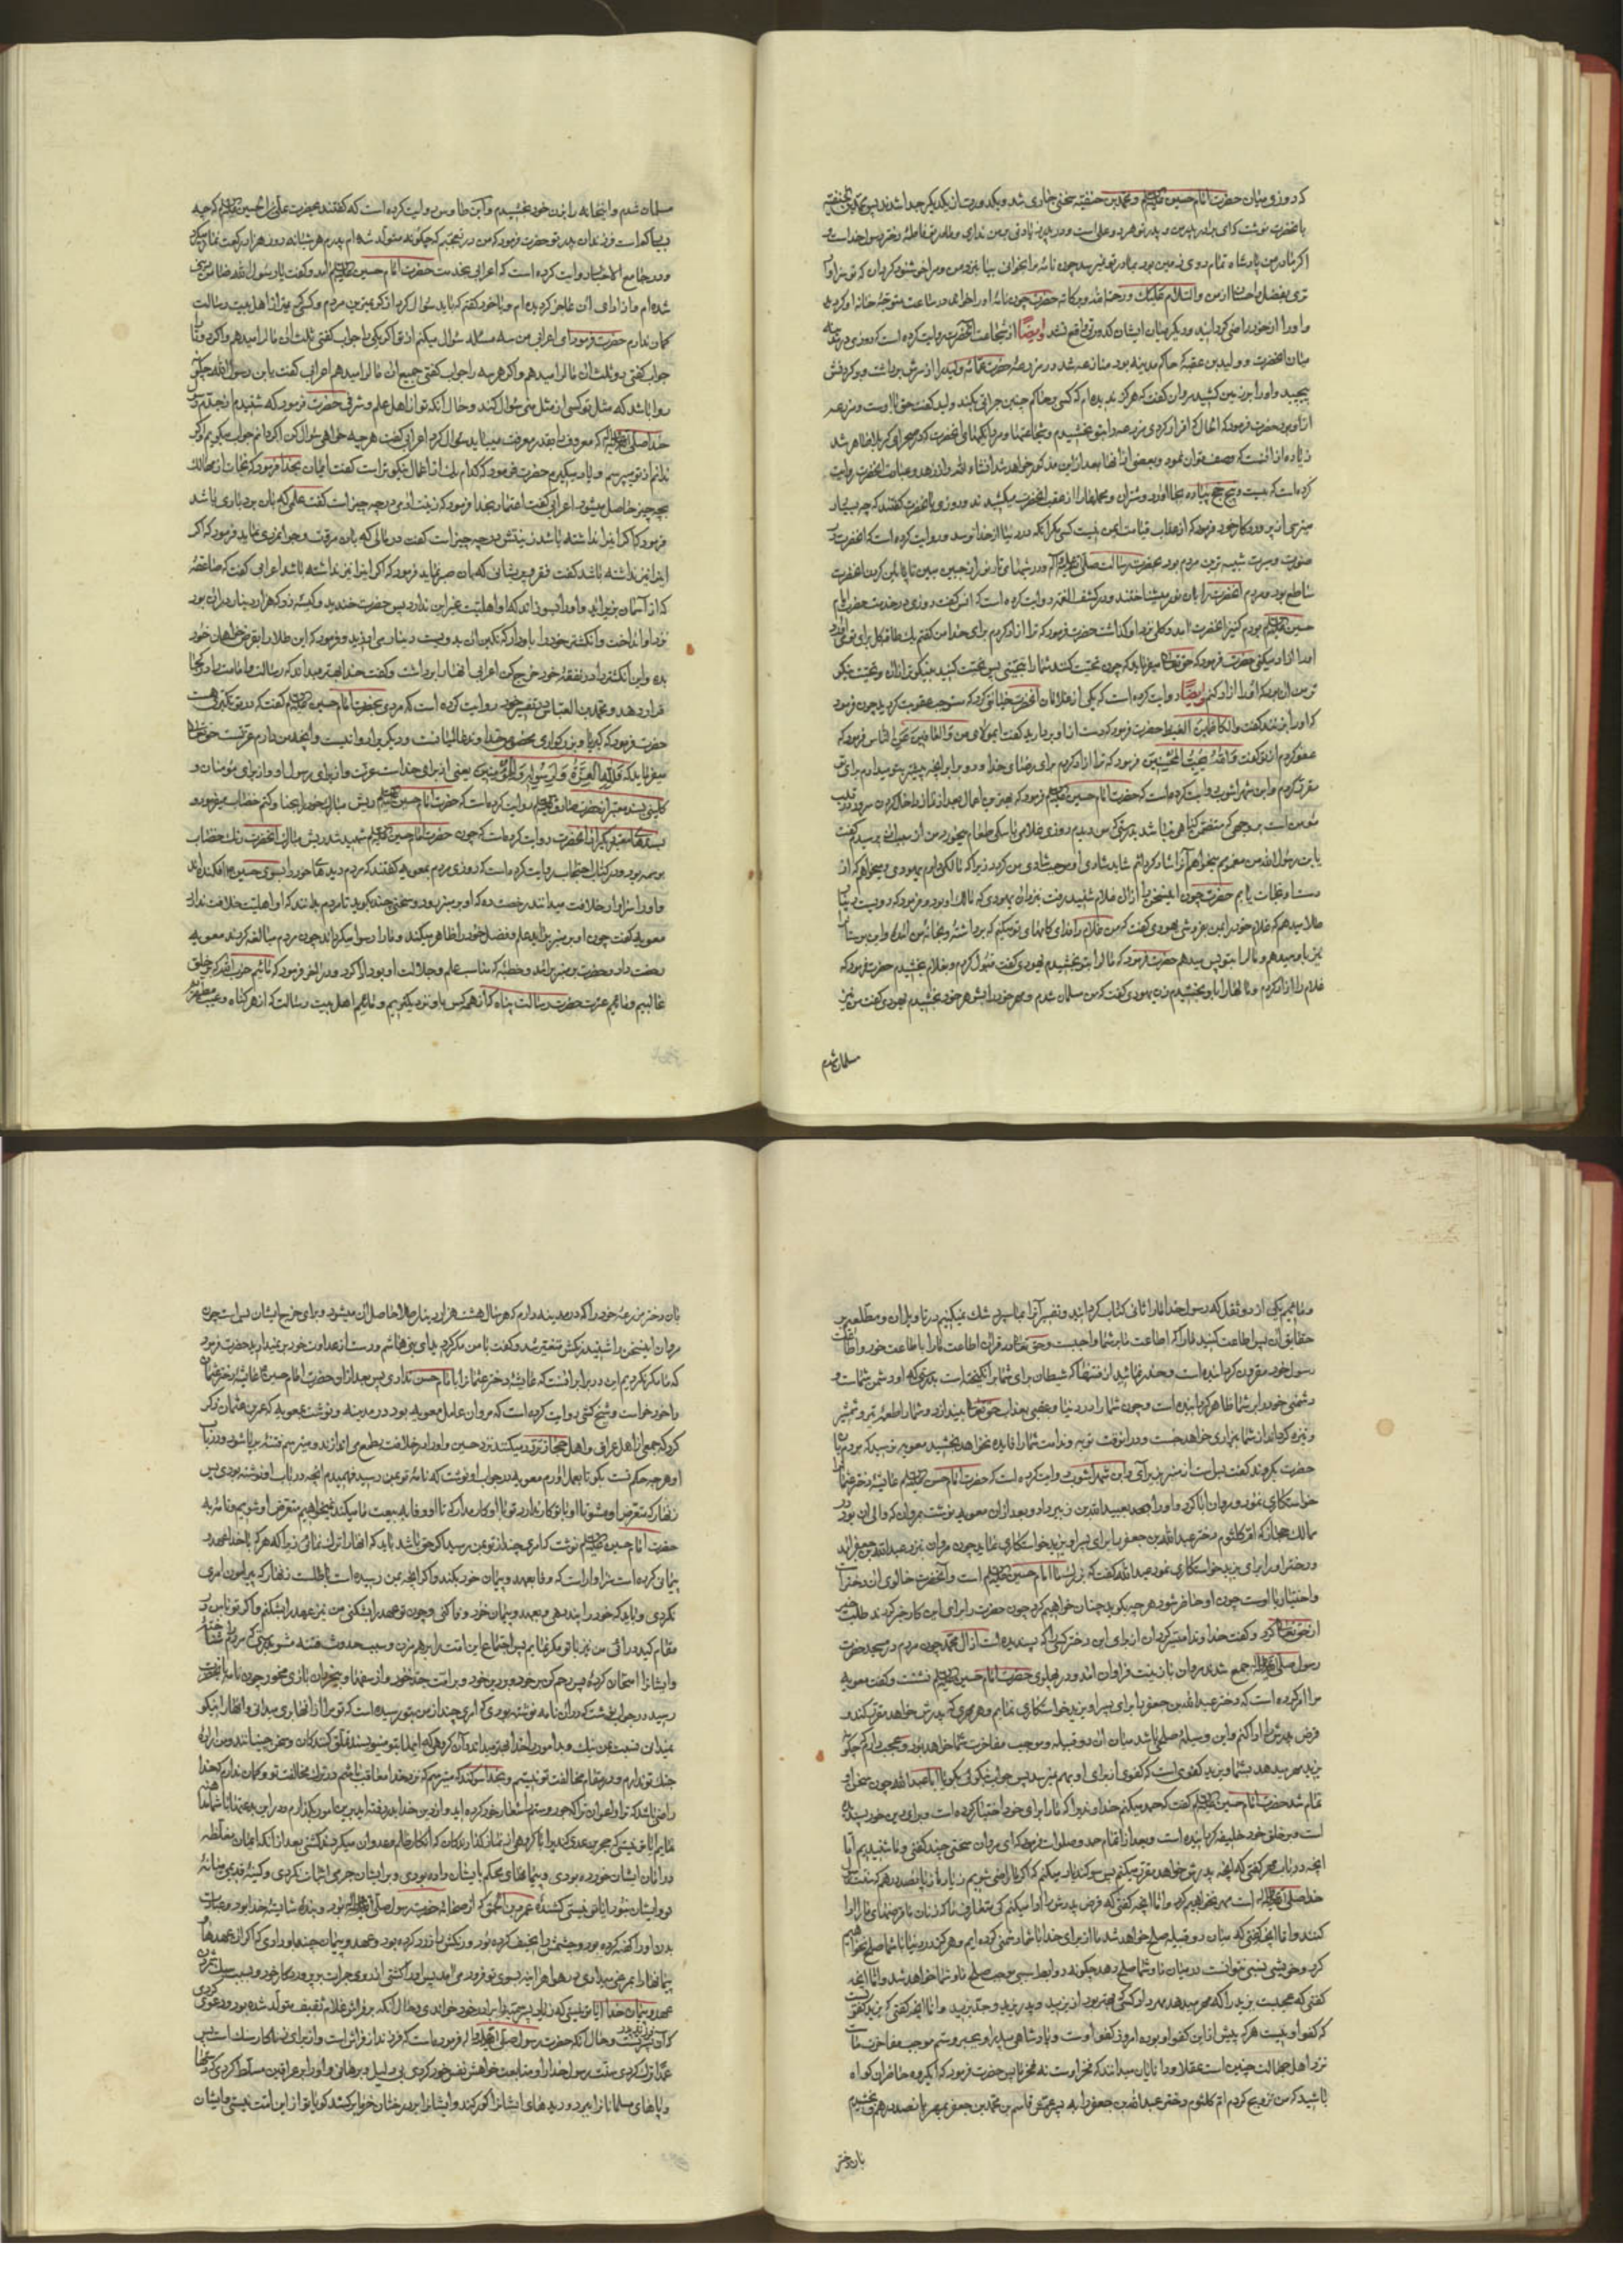 که روزی میان حضرت امام حسین علیه السلام و محمد بن حنفیه سخنی جاری شد و بکدورت از یکدیگر جدا شدند پس محمد بن حنفیه
بآنحضرت نوشت که ای برادر پدر من و پدر تو هر دو علی است و در پدر زیادتی بر من نداری و مادر تو فاطمه دختر رسول خداست و
اگر مادر من پادشاه تمام روی زمین بود بمادر تو نمیرسد چون نامه مرا بخوانی بیا بنزد من و مرا خوشنود گردان که تو سزاوار
تری بفضل و احسان از من والسلام علیک و رحمة الله و برکاته حضرت چون نامه او را خواند در ساعت متوجه خانه او گردید
و او را از خود راضی گردانید و دیگر میان ایشان کدورتی واقع نشد ایضا از شجاعت آنحضرت روایت کرده است که روزی در مدینه
میان آنحضرت و ولید بن عقبه که حاکم مدینه بود منازعه شد در مزرعه حضرت عمامه ولید را از سرش برداشت و بر گردنش
پیچید و او را بر زمین کشید مروان گفت که هرگز ندیده ام که کسی بر حاکم چنین جرأتی بکند ولید گفت حق با اوست و مزرعه
از او بود حضرت فرمود که الحال که اقرار کردی مزرعه را بتو بخشیدم و شجاعتها و مردانگیهای آنحضرت که در صحرای کربلا ظاهر شد
زیاده از آنست که وصف توان نمود و بعضی از آنها بعد از این مذکور خواهد شد انشاء الله و از زهد و عبادت آنحضرت روایت
کرده است که بیست و پنج حج پیاده بجا آورد و شتران و محملها را از عقب آنحضرت میکشیدند و روزی بآنحضرت گفتند که چه بسیار
میترسی از پروردگار خود فرمود که از عذاب قیامت ایمن نیست کسی مگر آنکه در دنیا از خدا ترسد و روایت کرده است که آنحضرت در
صورت و سیرت شبیه ترین مردم بود بحضرت رسالت صلی الله علیه وآله و در شبهای تار نور از جبین مبین تا پایین گردن آنحضرت
ساطع بود و مردم آنحضرت را بآن نور میشناختند و در کشف الغمه روایت کرده است که انس گفت روزی در خدمت حضرت امام
حسین علیه السلام بودم کنیز آنحضرت آمد و گلی نزد او گذاشت حضرت فرمود که ترا آزاد کردم برای خدا من گفتم یک طاقه گل برای تو آورد
او را آزاد میکنی حضرت فرمود که حق تعالی میفرماید که چون تحیت کنند شما را بتحیتی پس تحیت کنید بنیکوتر از آن و تحیت نیکو
تر من آن بود که او را آزاد کنم ایضا روایت کرده است که یکی از غلامان آنحضرت خیانتی کرد که مستوجب عقوبت گردید چون فرمود
که او را بزنند گفت والکاظمین الغیظ حضرت فرمود که دست از او بردارید گفت ای مولای من والعافین عن الناس فرمود که
عفو کردم از تو گفت والله یحب المحسنین فرمود که ترا آزاد کردم برای رضای خدا و دو برابر آنچه پیشتر بتو میدادم برای تو
مقرر کردم و ابن شهر آشوب روایت کرده است که حضرت امام حسین علیه السلام فرمود که بهترین اعمال بعد از نماز داخل کردن سرور در قلب
مؤمن است بر وجهی که متضمن گناهی نباشد بدرستی که من دیدم روزی غلامی با سگی طعام میخورد من از سبب آن پرسیدم گفت
یابن رسول الله من مغمومم میخواهم آنرا شاد گردانم شاید شادی او موجب شادی من گردد زیرا که مالکی دارم یهودی و میخواهم که از
دست او نجات یابم حضرت چون این سخن را از آن غلام شنید رفت بنزد آن یهودی که مالک او بود و فرمود که دویست دینار
طلا میدهم که غلام خود را بمن بفروشی یهودی گفت که من غلام را فدای گامهای تو میکنم که برداشته و بخانه من آمده و این بستان
نیز باو میدهم و مال را بتو پس میدهم حضرت فرمود که مال را بتو بخشیدم یهودی گفت قبول کردم و بغلام بخشیدم حضرت فرمود که
غلام را آزاد کردم و مالها را باو بخشیدم زن یهودی گفت که من مسلمان شدم و مهر خود را بشوهر خود بخشیدم یهودی گفت من نیز
مسلمان شدم
مسلمان شدم و این خانه را بزن خود بخشیدم و ابن طاوس روایت کرده است که گفتند بحضرت علی بن الحسین علیه السلام که چه
بسیار کم است فرزندان پدر تو حضرت فرمود که من در تعجبم که چگونه متولد شده ام پدرم هر شبانه روز هزار رکعت نماز میکرد
و در جامع الاخبار روایت کرده است که اعرابی بخدمت حضرت امام حسین علیه السلام آمد و گفت یابن رسول الله ضامن دیتی
شده ام و از ادای آن عاجز گردیده ام و با خود گفتم که باید سؤال کرد از کریمترین مردم و کسی کریمتر از اهل بیت رسالت
گمان ندارم حضرت فرمود ای اعرابی من سه مسئله سؤال میکنم از تو اگر یکی را جواب گفتی ثلث آن مال را میدهم و اگر دو تا را
جواب گفتی دو ثلث آن مال را میدهم و اگر هر سه را جواب گفتی جمیع آن مال را میدهم اعرابی گفت یابن رسول الله چگونه
روا باشد که مثل تو کسی از مثل منی سؤال کند و حال آنکه تو از اهل علم و شرفی حضرت فرمود که شنیدم از جدم رسول
خدا صلی الله علیه وآله که معروف را بقدر معرفت میباید سؤال کردم اعرابی گفت هر چه خواهی سؤال کن اگر دانم جواب میگویم و اگر
ندانم از تو میپرسم و یاد میگیرم حضرت فرمود که کدام یک از اعمال نیکوتر است گفت ایمان بخدا فرمود که نجات از مهالک
بچه چیز حاصل میشود اعرابی گفت اعتماد بخدا فرمود که زینت آدمی در چه چیز است گفت علمی که بآن بردباری باشد
فرمود که اگر اینرا نداشته باشد زینتش در چه چیز است گفت در مالی که بآن مروت و جوانمردی نماید فرمود که اگر
اینرا نیز نداشته باشد گفت فقر و پریشانی که بآن صبر نماید فرمود که اگر اینرا نیز نداشته باشد اعرابی گفت که صاعقه
که از آسمان بزیر آید و او را بسوزاند که او اهلیت غیر این ندارد پس حضرت خندید و کیسه زر که هزار دینار در آن بود
نزد او انداخت و انگشتر خود را باو داد که نگین آن بدویست دینار می ارزید و فرمود که این طلا را بقرض خواهان خود
بده و این انگشتر را در نفقه خود خرج کن اعرابی آنها را برداشت و گفت خدا بهتر میداند که رسالت و امامت را در کجا
قرار دهد و محمد بن العباس در تفسیر خود روایت کرده است که مردی بحضرت امام حسین علیه السلام گفت که در تو تکبری هست
حضرت فرمود که کبریا و بزرگواری مخصوص خداوند عالمیانست و دیگری را روا نیست و آنچه من دارم عزتست حق تعالی
میفرماید که و لله العزة و لرسوله و للمؤمنین یعنی از برای خداست عزت و از برای رسول او و از برای مؤمنان و
کلینی بسند معتبر از حضرت صادق علیه السلام روایت کرده است که حضرت امام حسین علیه السلام ریش مبارک خود را بحنا و کتم خضاب میفرمود و
بسندهای معتبر دیگر از آنحضرت روایت کرده است که چون حضرت امام حسین علیه السلام شهید شد ریش مبارک آنحضرت رنگ خضاب
بوسمه بود و در کتاب احتجاج روایت کرده است که روزی مردم بمعویه گفتند که مردم دیده های خود را بسوی حسین افکنده اند
و او را سزاوار خلافت میدانند رخصت ده که او بر منبر رود و سخنی چند بگوید تا مردم بدانند که او اهلیت خلافت ندارد
معویه گفت چون او بر منبر برآید علم و فضل خود را ظاهر میکند و ما را رسوا میگرداند چون مردم مبالغه کردند معویه
رخصت داد و حضرت بر منبر برآمد و خطبه که مناسب علم و جلالت او بود ادا کرد و در آخر فرمود که مائیم حزب الله که بر خلق
غالبیم و مائیم عترت حضرت رسالت پناه که از همه کس باو نزدیکتریم و مائیم اهل بیت رسالت که از هر گناه و عیب مطهریم
و مائیم یکی از دو ثقل که رسول خدا ما را ثانی کتاب گردانید و تفسیر آنرا بما سپرد شک نمیکنیم در تاویل آن و مطلعیم بر
حقایق آن پس اطاعت کنید ما را که اطاعت ما بر شما واجبست و حق تعالی در قرآن اطاعت ما را با طاعت خود و اطاعت
رسول خود مقرون گردانیده است و حذر نمائید از فتنها که شیطان برای شما برانگیخته است بدرستی که او دشمن شماست و
دشمنی خود را بر شما ظاهر گردانیده است و چون شما را در دنیا و عقبی بعذاب حق تعالی بیندازد و شما را طعمه تیر و شمشیر
و نیزه گرداند از شما بیزاری خواهد جست و در آنوقت توبه و ندامت شما را فایده نخواهد بخشید معویه ترسید که مردم با
حضرت بگروند گفت بس است از منبر بزیر آی و ابن شهر آشوب روایت کرده است که حضرت امام حسن علیه السلام عایشه دختر عثمان را
خواستگاری نمود و مروان ابا کرد و او را بعبد الله بن زبیر داد و بعد از آن معویه نوشت بمروان که والی آن بود در
ممالک حجاز که ام کلثوم دختر عبد الله بن جعفر را برای پسر او یزید خواستگاری نماید چون مروان بنزد عبد الله بن جعفر آمد
و دختر او را برای یزید خواستگاری نمود عبد الله گفت که بزرگ ما امام حسین علیه السلام است و آنحضرت خالوی آن دختر است
و اختیار با اوست چون او حاضر شود هر چه بگوید چنان خواهیم کرد چون حضرت را برای این کار خبر کردند طلب خیر
از حق تعالی کرد و گفت خداوندا میسر گردان از برای این دختر کسی را که پسندیده است از آل محمد چون مردم در مسجد حضرت
رسول صلی الله علیه وآله جمع شدند مروان با زینت فراوان آمد و در پهلوی حضرت امام حسین علیه السلام نشست و گفت معویه
مرا امر کرده است که دختر عبد الله بن جعفر را برای پسر او یزید خواستگاری نمایم و هر مهری که پدرش خواهد مقرر کند و
قرض پدرش را ادا کنم و این وسیله صلحی باشد میان این دو قبیله و موجب مفاخرت شما خواهد بود و عجب دارم که چگونه
یزید مهر میدهد بشما و یزید کفوی است که کفوی از برای او بهم نمیرسد پس جواب نیکوئی بگو یا ابا عبد الله چون سخن او
تمام شد حضرت امام حسین علیه السلام گفت که حمد میکنم خداوندی را که ما را برای خود اختیار کرده است و برای دین خود پسندیده
است و بر خلق خود خلیفه گردانیده است و بعد از اتمام حمد و صلوات فرمود که ای مروان سخنی چند گفتی و ما شنیدیم اما
آنچه در باب مهر گفتی که آنچه پدرش خواهد مقرر میکنم پس سوگند یاد میکنم که اگر ما راضی شویم زیاده از پانصد درهم که سنت رسول
خدا صلی الله علیه وآله است مهر نخواهیم کرد و اما آنچه گفتی که قرض پدرش را ادا میکنم کی متعارف ما که زنان ما قرضهای ما را ادا
کنند و اما آنچه گفتی که میان دو قبیله صلح خواهد شد ما از برای خدا با شما دشمنی کرده ایم و هرگز در دنیا با شما صلح نخواهیم
کرد و خویشی نسبی نتوانست در میان ما و شما صلح دهد چگونه رابطه سببی موجب صلح ما و شما خواهد شد و اما آنچه
گفتی که عجب است یزید را که مهر میدهد مهر داد کسی که بهتر بود از یزید و پدر یزید و جد یزید و اما آنچه گفتی که یزید کفوی است
که کفو او نیست هر که پیش از این کفو او بوده امروز کفو اوست و پادشاهی پدر او
نزد اهل جهالت چنین است عقلا و دانایان میدانند که فخر اوست نه فخر ما پس حضرت فرمود که ای گروه حاضران گواه
باشید که من تزویج کردم ام کلثوم دختر عبد الله بن جعفر را به پسر عمش قاسم بن محمد بن جعفر بمهر پانصد درهم و بخشیدم
بآن دختر
بآن دختر مزرعه خود را که در مدینه دارم که هر سال هشت هزار دینار طلا حاصل آن میشود و برای خرج ایشان بس است چون
مروان این سخن را شنید رنگش متغیر شد و گفت با من مکر کردید ای بنی هاشم و دست از عداوت خود بر نمیدارید حضرت فرمود
که ما مکر نکردیم این در برابر آنست که عایشه دختر عثمان را با امام حسن ندادی پس بعد از آن حضرت امام حسین عایشه دختر عثمان
را خود خواست و شیخ کشی روایت کرده است که مروان عامل معویه بود در مدینه و نوشت بمعویه که عمر بن عثمان ذکر
کرد که جمعی از اهل عراق و اهل حجاز تردد میکنند نزد حسین و او را در خلافت بطمع می اندازند و میترسم فتنه برپا شود در آن باب
او هر چه حکم تست بگو تا بعمل آورم معویه در جواب او نوشت که نامه تو بمن رسید فهمیدم آنچه در باب او نوشته بودی پس
زنهار که متعرض او مشو تا او با تو کار ندارد تو با او کار مدار که تا او وفا به بیعت ما میکند نمیخواهیم متعرض او شویم و نامه به
حضرت امام حسین علیه السلام نوشت که امری چند از تو بمن رسید اگر حق باشد باید که آنها را ترک نمائی زیرا که هر که با خدا عهد و
پیمانی کرده است سزاوار است که وفا بعهد و پیمان خود بکند و اگر آنچه بمن رسیده است باطلست زنهار که پیرامون امری
نگردی و باید که خود را پند دهی و بعهد و پیمان خود وفا کنی و چون تو عهد را بشکنی من نیز عهد را بشکنم و اگر تو با من در
مقام کید درآئی من نیز با تو مکر نمایم پس اجتماع این امت را بر هم مزن و سبب حدوث فتنه مشو بدرستی که مردم را شناخته
و ایشانرا امتحان کرده پس رحم کن بر خود و بر دین خود و بر امت جد خود و از سفها و بیخردان بازی مخور چون نامه بآنحضرت
رسید در جواب نوشت که در آن نامه نوشته بودی که امری چند از من بتو رسیده است که تو مرا از آنها بری میدانی
جنگ تو ندارم و در مقام مخالفت تو نیستم و بخدا سوگند که میترسم که نزد خدا معاقب باشم در ترک مخالفت تو و گمان ندارم که خدا